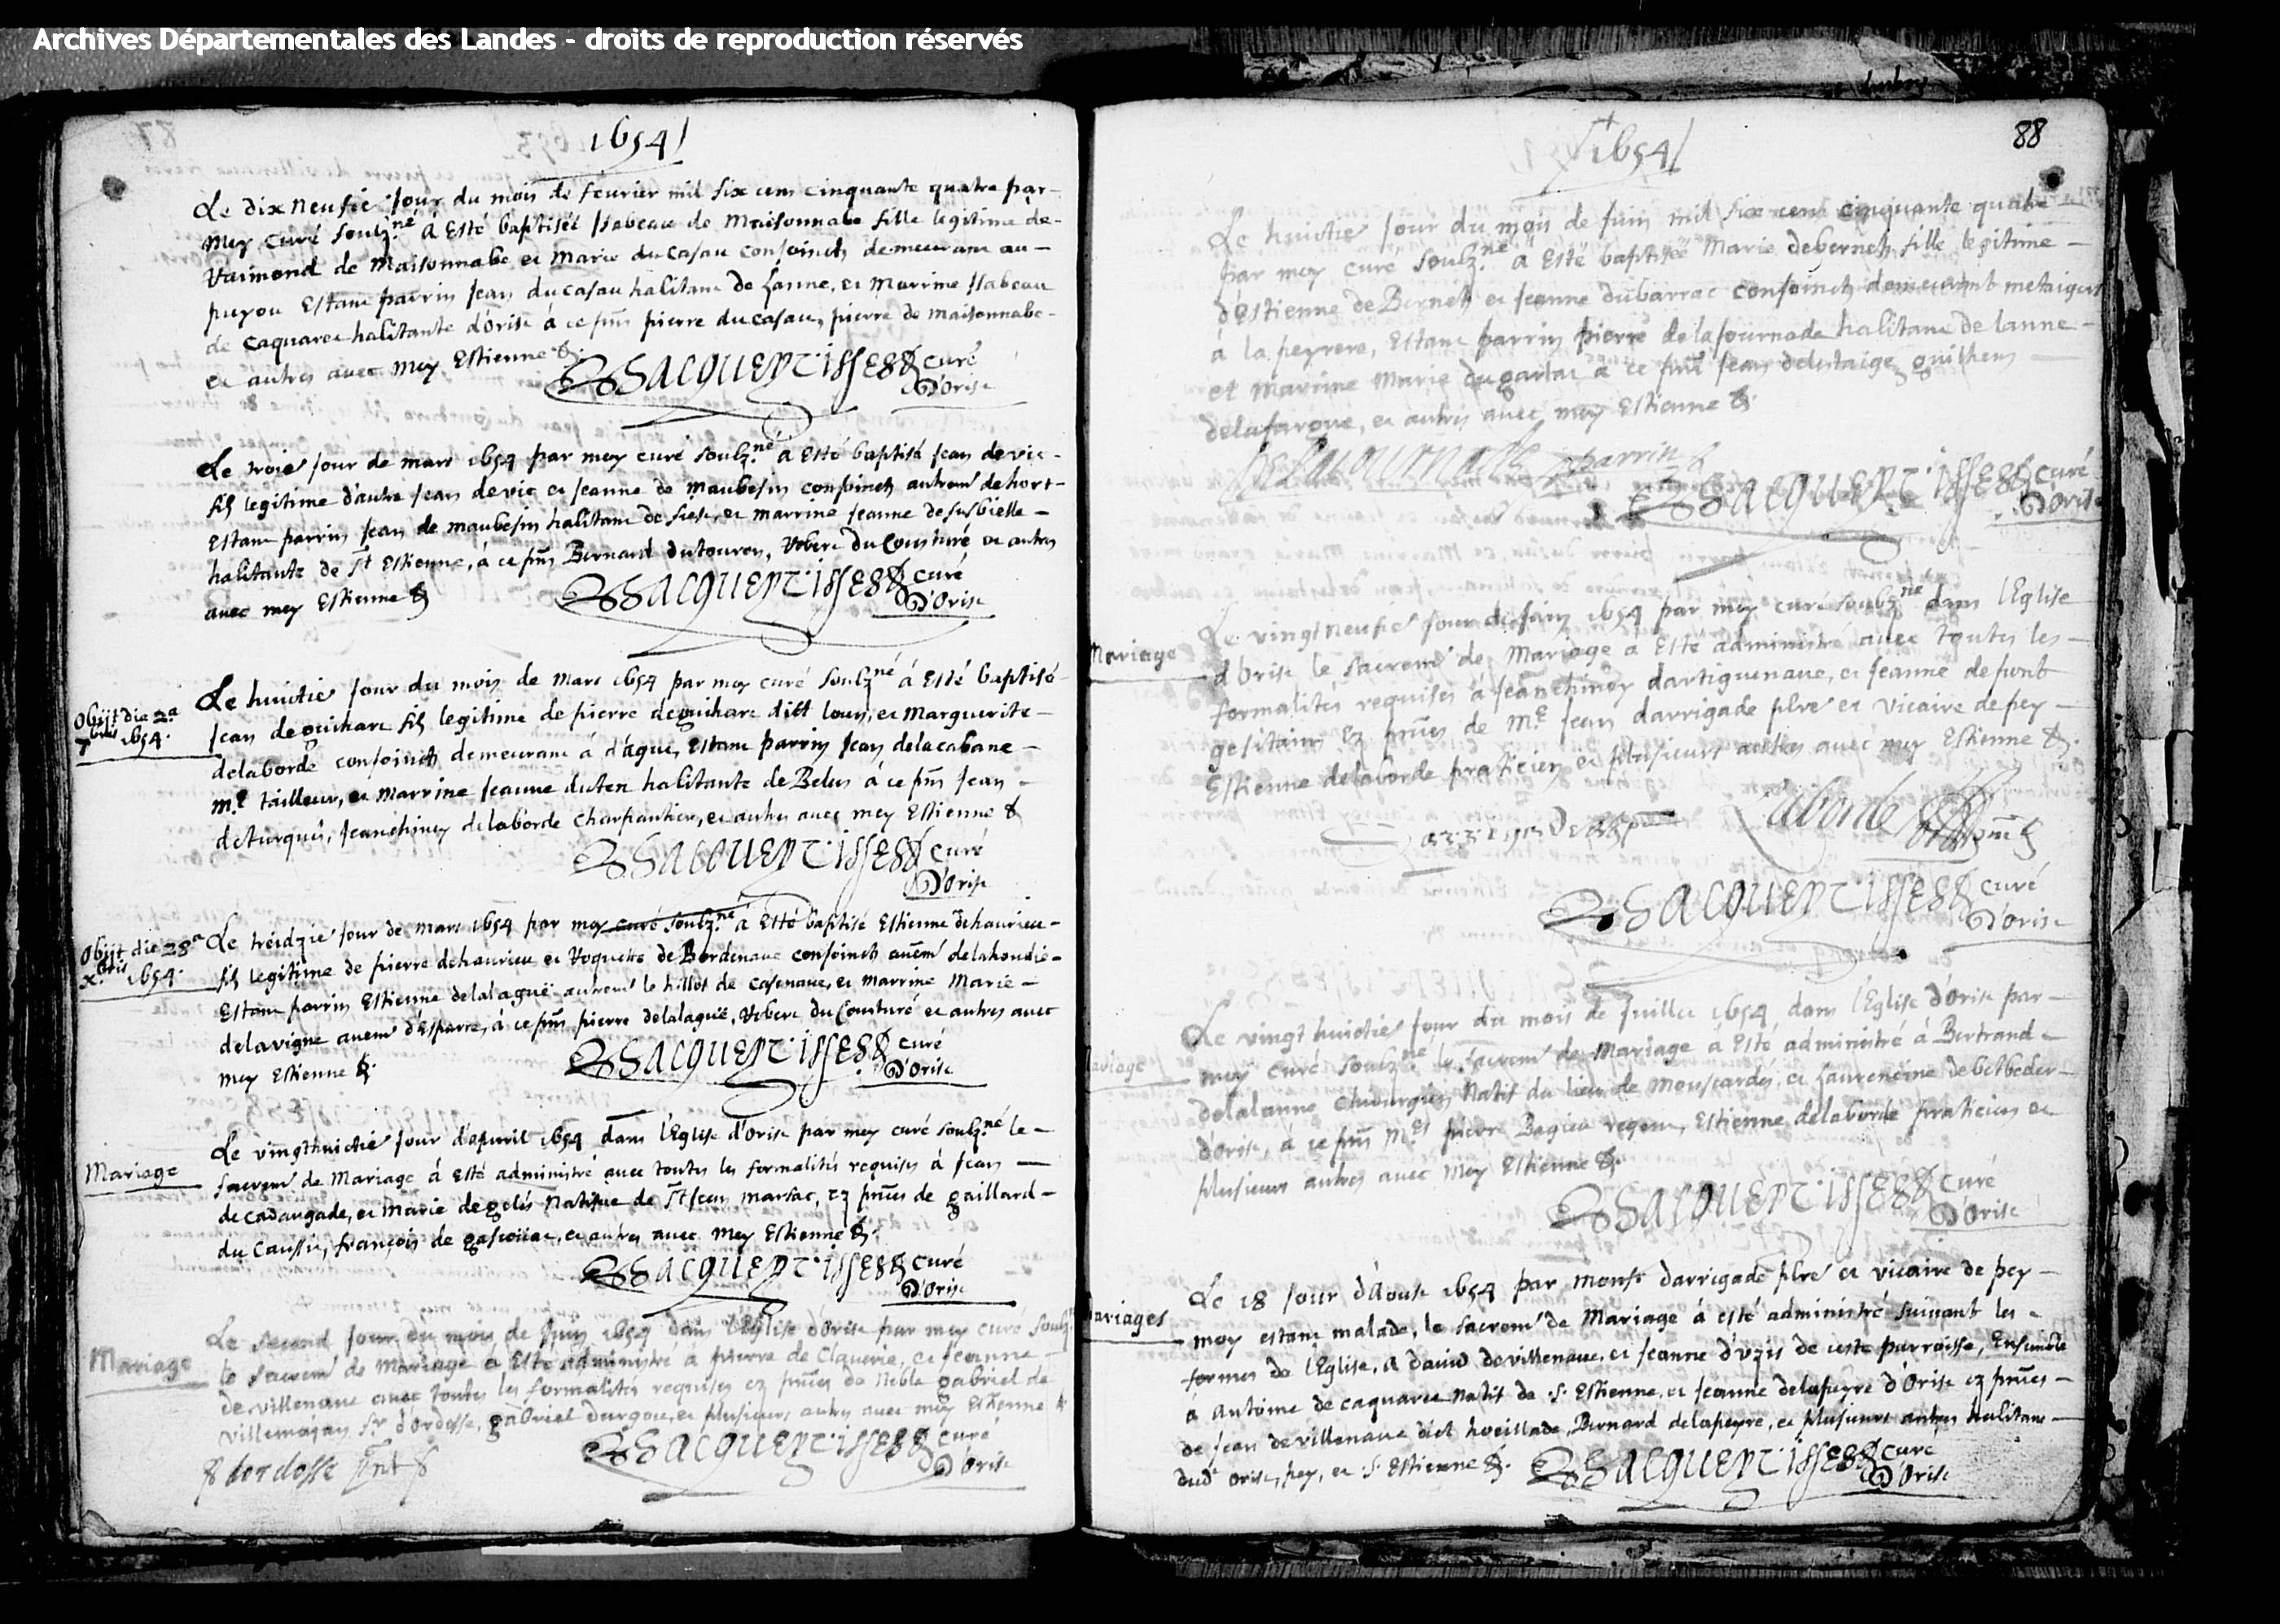 Archives Départementales des Landes - droits de reproduction réservés
1654
Le dix neufie jour du mois de feurier mil six cens cinquante quatre par
moy curé soubz.né à Esté baptiséé Isabeau de Maisonnabe fille legitime de
Raimond de Maisonnabe et Marie ducasau conjoincts demeurans au
puyou Estant parrin Jean ducasau habitant de Lanne, et Marrine Isabeau
de Caquarec habitante d'orist à ce pnts pierre ducasau, pierre de maisonnabe
et autres avec moy Estienne &.
SACQUEPT·ISSES curé
D'Orist
Le troie jour de mars 1654 par moy curé soubz.né a Esté baptisé Jean devic
fils legitime d'autre Jean devic et Jeanne de Maubesin conjoincts autremt dehort
Estant parrin Jean de maubesin habitant de siest, et marrine Jeanne desusbielle
habitante de St Estienne, à ce pnts Bernard dutouron, Robert du Cousturé et autres
avec moy Estienne &
SACQUEPT·ISSES curé
D'Orist
Obijt die 2a
7bris 1654.
Le huictie jour du mois de Mars 1654 par moy curé soubzné à Esté baptisé
Jean deguichare fils legitime de pierre deguichare dict louis, et Marguerite
delaborde conjoincts demeurant à d'ague, Estant parrin Jean delacabane
m.e tailleur, et Marrine Jeanne duten habitante de Belus à ce pnts Jean
deturquis, Jeanchinoy delaborde charpantier, et autres avec moy Estienne &
SACQUEPT·ISSES curé
D'Orist
Obijt die 28a
x.bris 1654.
Le treidzie jour de mars 1654 par moy curé soubz.né à Esté baptisé Estienne dehaurieu
fils legitime de pierre dehaurieu et Roquette de Bordenave conjoincts autremt delahondie
Estant parrin Estienne delalaguë autremt le hillot de casenave, et marrine Marie
delavigne autremt d'Esparre, à ce pnts pierre delalaguë, Robert du Cousturé et autres avec
moy Estienne &.
SACQUEPT·ISSES curé
D'Orist
Mariage
Le vingthuictie jour d'apuril 1654 dans l'Eglise d'orist par moy curé soubz.né le
sacremt de Mariage à Esté administré avec toutes les formalités requises à Jean
decadaugade, et Marie degelés Natifue de St Jean marsac, ez pnces de gaillard
du Caussie, françois de gascoüac, et autres avec moy Estienne &.
SACQUEPT·ISSES curé
D'Orist
Mariage
Le second jour du mois de Juin 1654 dans l'Eglise d'orist par moy curé soubz.
le sacremt de Mariage à Esté administré à pierre de Claverie, et Jeanne
devillenave avec toutes les formalités requises ez pnces de Noble gabriel de
villemajan Sr d'Ordosse, gabriel durgou, et plusieurs autres avec moy Estienne &
dordosse pnt
SACQUEPT·ISSES curé
D'Orist
88
1654
Le huictie jour du mois de Juin mil six cens cinquante quatre
par moy curé soubz.né à Esté baptiséé Marie debernets fille legitime
d'Estienne de Bernets et Jeanne dubarrac conjoincts demeurant metaiers
à la peyrere, Estant parrin pierre delajournade habitant de lanne
et Marrine Marie dugartac à ce pnts Jean delestaige, guilhem
delafargue, et autres avec moy Estienne &.
delajournade parrin
SACQUEPT·ISSES curé
D'Orist
Mariage
Le vingt neufie jour de Juin 1654 par moy curé soubz.né dans l'Eglise
d'Orist le sacremt de Mariage a Esté administré avec toutes les
formalités requises à Jeanchinoy dartiguenave, et Jeanne depont
gesitains ez pnces de M.e Jean darrigade pbre et vicaire de pey
Estienne delaborde praticien et plusieurs autres avec moy Estienne &.
Laborde
SACQUEPT·ISSES curé
D'Orist
Mariage
Le vingt huictie jour du mois de Juillet 1654 dans l'Eglise d'orist par
moy curé soubz.né le sacremt de Mariage à Esté administré à Bertrand
delalanne chirurgien Natif du lieu de Mouscardés, et Laurencine debetbeder
d'orist, à ce pnts M.es pierre Bagieu regent, Estienne delaborde praticien et
plusieurs autres avec moy Estienne &.
SACQUEPT·ISSES curé
D'Orist
Mariages
Le 18 jour d'Aoust 1654 par Monsr darrigade pbre et vicaire de pey
moy estant malade, le sacremt de Mariage à esté administré suivant les
formes de l'Eglise, a david devillenave, et Jeanne d'uzis de ceste parroisse, Ensemble
à Antoine de caquarec natif de S. Estienne, et Jeanne delapeyre d'Orist ez pnces
de Jean devillenave dict hoeillade, Bernard delapeyre, et plusieurs autres habitans
dud orist, pey, et S. Estienne &.
SACQUEPT·ISSES curé
D'Orist